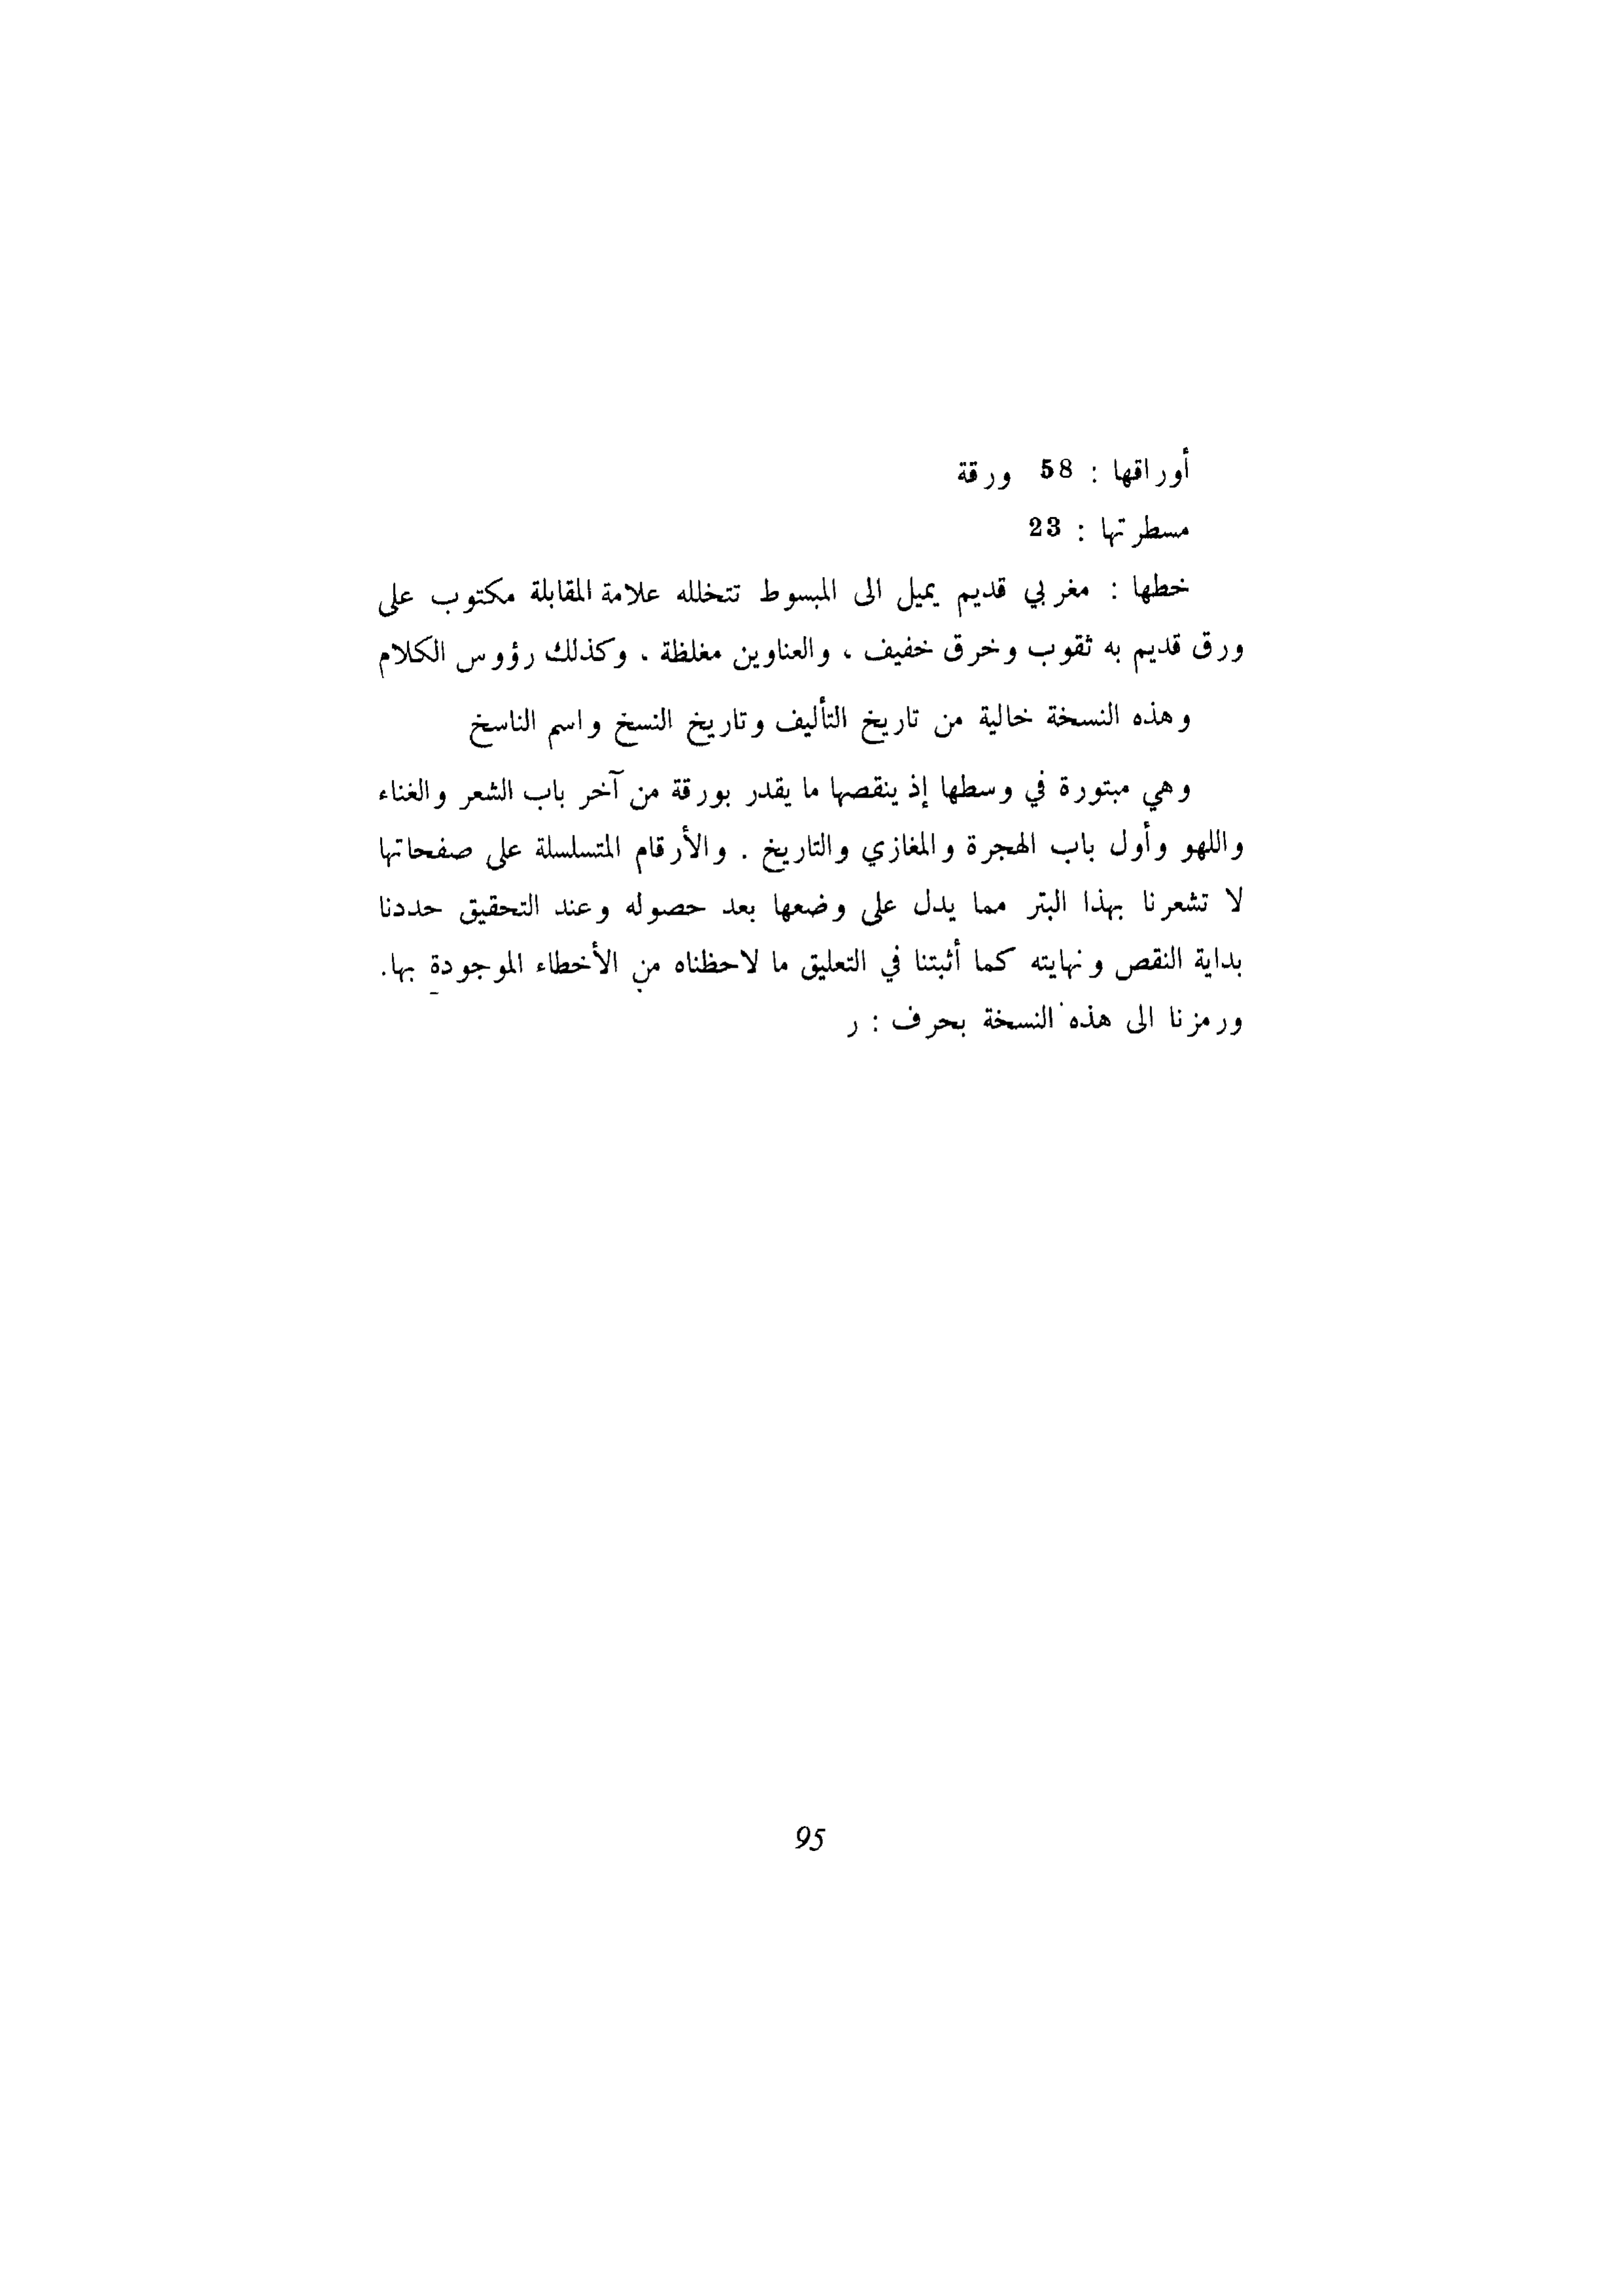 أوراقها : 58 ورقة
مسطرتها : 23
خطها : مغربي قديم يميل الى المبسوط تتخلله علامة المقابلة مكتوب على
ورق قديم به ثقوب وخرق خفيف ، والعناوين مغلظة ، وكذلك رؤوس الكلام
وهذه النسخة خالية من تاريخ التأليف وتاريخ النسخ واسم الناسخ
وهي مبتورة في وسطها إذ ينقصها ما يقدر بورقة من آخر باب الشعر والغناء
واللهو وأول باب الهجرة والمغازي والتاريخ . والأرقام المتسلسلة على صفحاتها
لا تشعرنا بهذا البتر مما يدل على وضعها بعد حصوله وعند التحقيق حددنا
بداية النقص ونهايته كما أثبتنا في التعليق ما لاحظناه من الأخطاء الموجودة بها.
ورمزنا الى هذه النسخة بحرف : ر
95